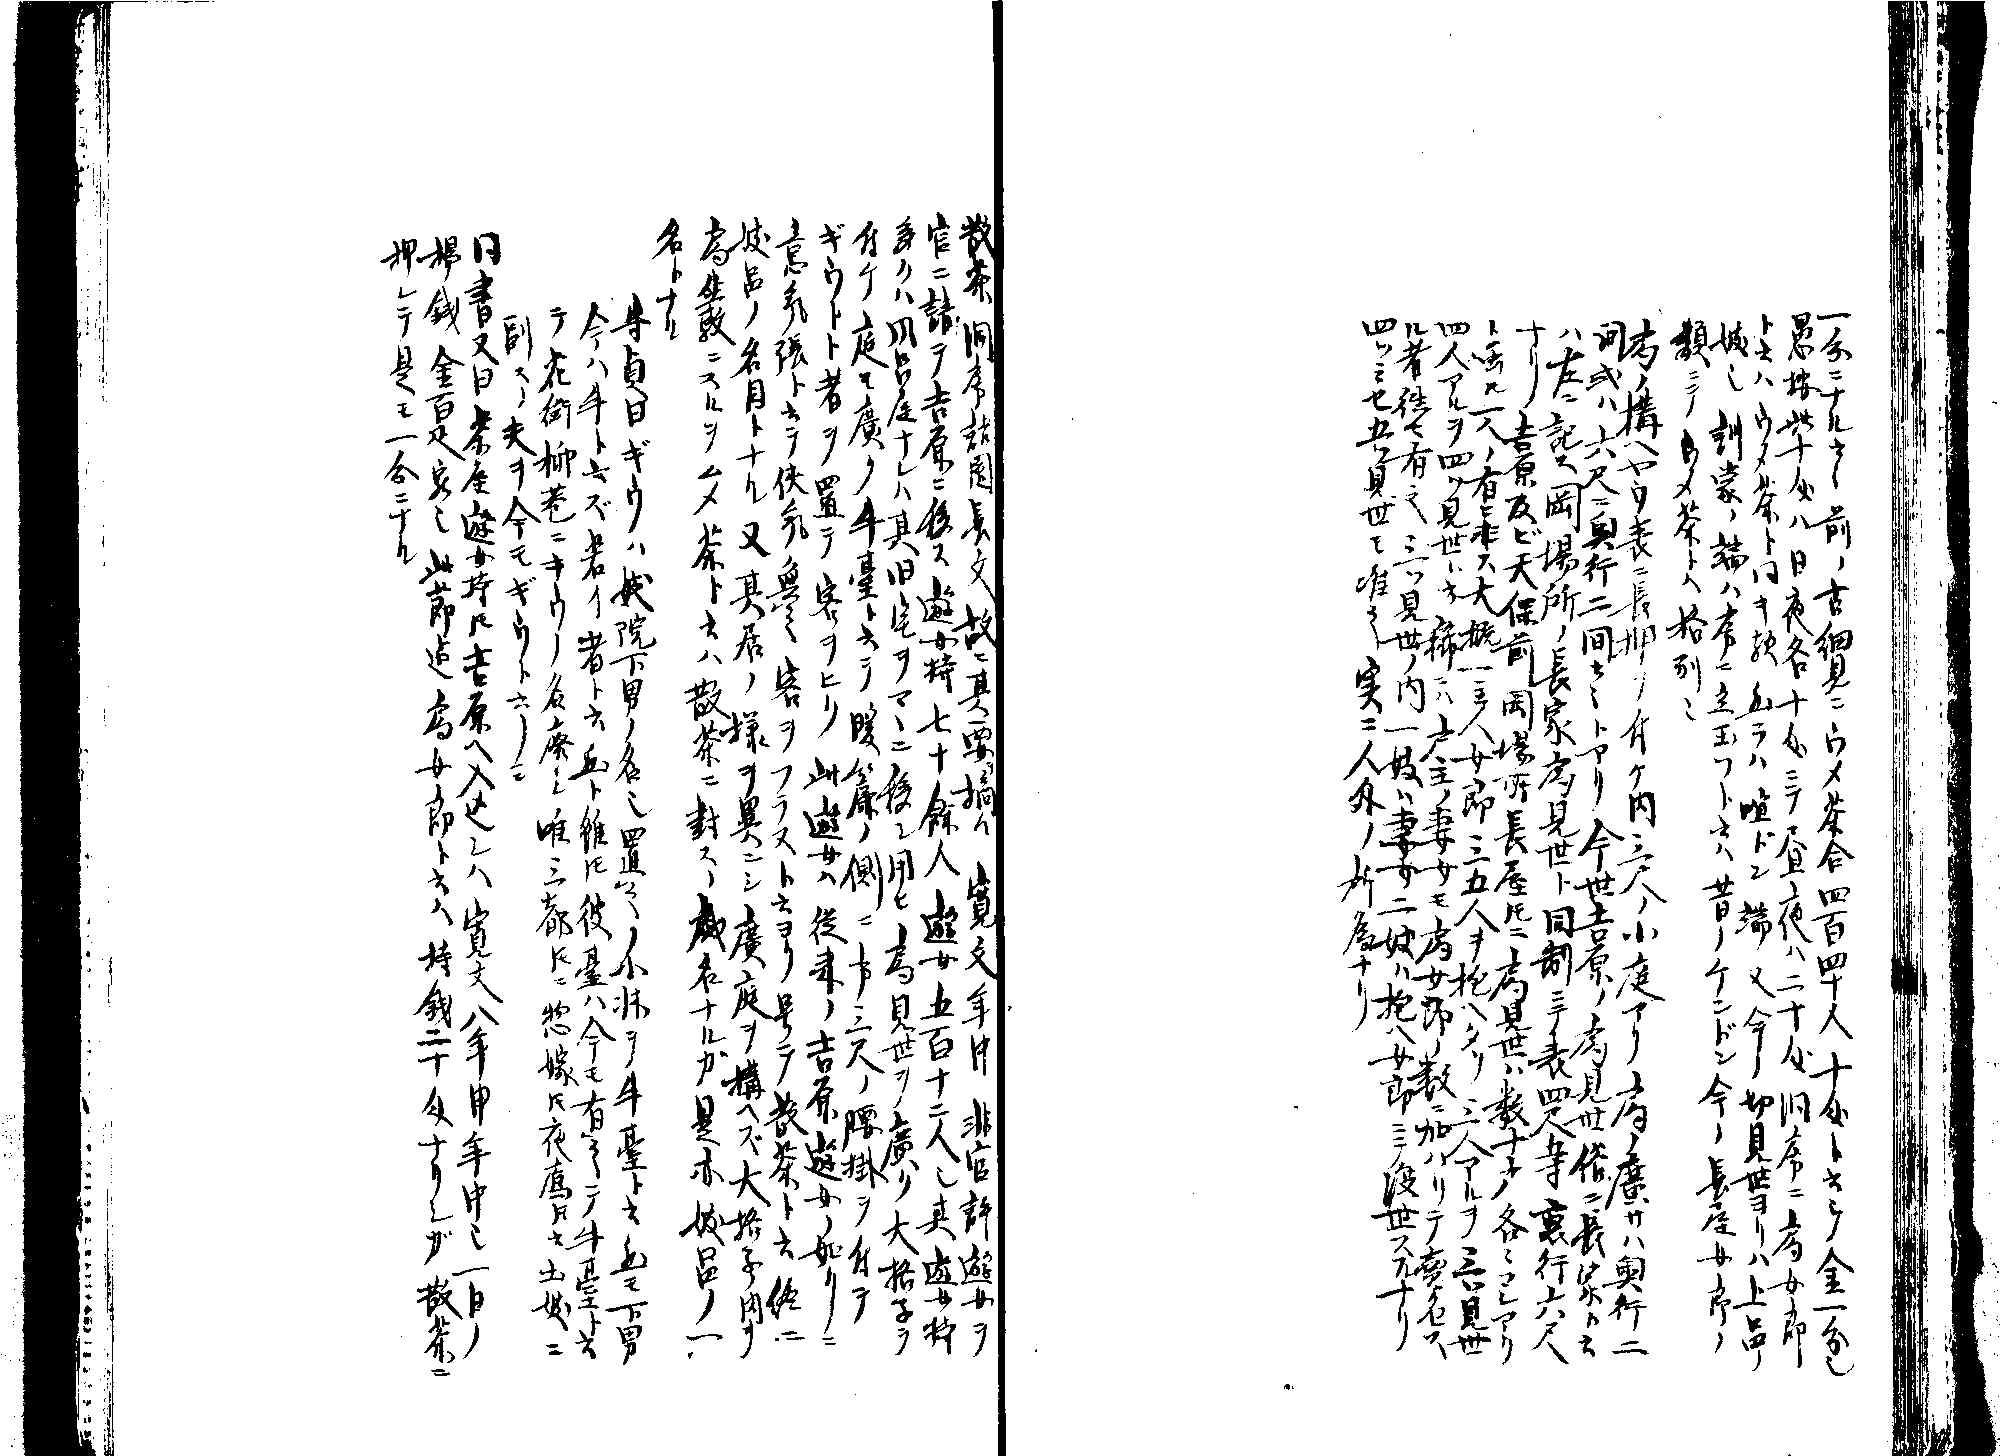 一分ニナル也 前ノ古細見ニウメ茶合四百四十人 十匁ト云シノ金一分也
愚按此十匁ハ日夜各十匁ニテ昼夜ハ二十匁 洞房ニ局女郎
ト云ハウメ茶ト同キ歟 五ラハ喧ドン 端 又今ノ切見世ヨリハ上品ノ
妓也 訓蒙ノ端ハ房ニ立玉フト云ハ昔ノケンドン今ノ長屋女郎ノ
類ニテ ウメ茶トハ格別也
局ノ構ヘヤウ表ニ長押ヲ付ケ内ニ三尺ノ小庭アリ 局ノ廣サハ奥行二
間或ハ六尺ニ奥行二間也トアリ 今世吉原ノ局見世俗ニ長家ト云
ハ左ニ記ス岡場所ノ長家局見世ト同制ニテ表四尺五寸裏行六尺
ナリ 吉原及ビ天保前岡場所長屋トモニ局見世ハ数十戸各コレアリ
ト雖モ一人ノ有ニ非ス大概一主人女郎三五人ヲ抱ヘタリ 三人アルヲ三ツ見世
四人アルヲ四ツ見世ト云 稀ニハ戸主ノ妻女モ局女郎ノ数ニ加ハリテ賣色ス
ル者往々有之 三ツ見世ノ内一妓ハ妻女二妓ハ抱ヘ女郎ニテ渡世スルナリ
四ツミセ五ツ見世モ准之 実ニ人外ノ所為ナリ
散茶 洞房語園長文故ニ其要ヲ摘ク 寛文年中非官許遊女ヲ
官ニ請テ吉原ニ移ス 遊女持七十餘人 遊女五百十二人也 其遊女持
多クハ風呂屋ナレハ其旧宅ヲマヽニ移シ用ヒ 局見世ヲ廣ク大格子ヲ
付ケ庭モ廣ク牛臺ト云テ暖簾ノ側ニ巾三尺ノ腰掛ヲ付テ
ギウト者ヲ置テ客ヲヒク 此遊女ハ従来ノ吉原遊女ノ如クニ
意気張ト云テ侠気無之 客ヲフラヌト云ヨリ号テ散茶ト云 終ニ
妓品ノ名目トナル 又其居ノ様ヲ異ニシ廣庭ヲ構ヘズ大格子用ヲ
局坐敷ニスルヲムメ茶ト云ハ散茶ニ對スノ戯名ナルガ是亦妓品ノ一
名トナル
守貞曰ギウハ妓院下男ノ名也 置之ノ小床ヲ牛臺ト云 五モ下男
今ハ牛ト云ズ若イ者ト云 五ト雖トモ彼臺ハ今モ有之ニテ牛臺ト云
テ花街柳巷ニギウノ名廃レ唯三都トモニ惣嫁トモ夜鷹トモ云土妓ニ
副スノ夫ヲ今モギウト云ノミ
同書又曰茶屋遊女持トモ吉原ヘ入込シハ寛文八年申年中也 一日ノ
揚銭金百疋宛也 此節迄局女郎ト云ハ揚銭二十匁ナリシガ散茶ニ
押レテ是モ一分ニナル